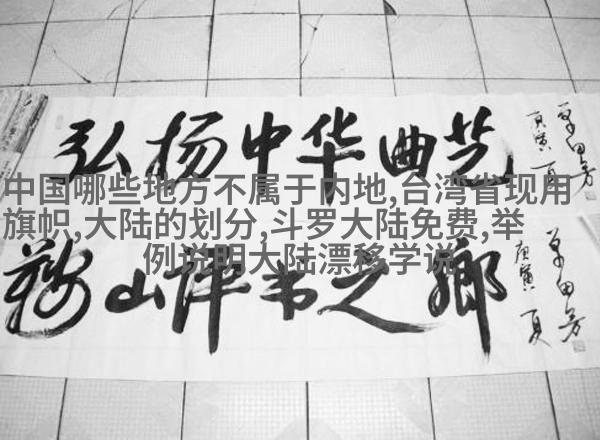 弘扬中华曲艺
庚寅夏 单田芳
中国哪些地方不属于内地,台湾省现用
旗帜,大陆的划分,斗罗大陆免费,举
例说明大陆漂移学说
鞍山评书之鄉
庚寅夏 单田芳